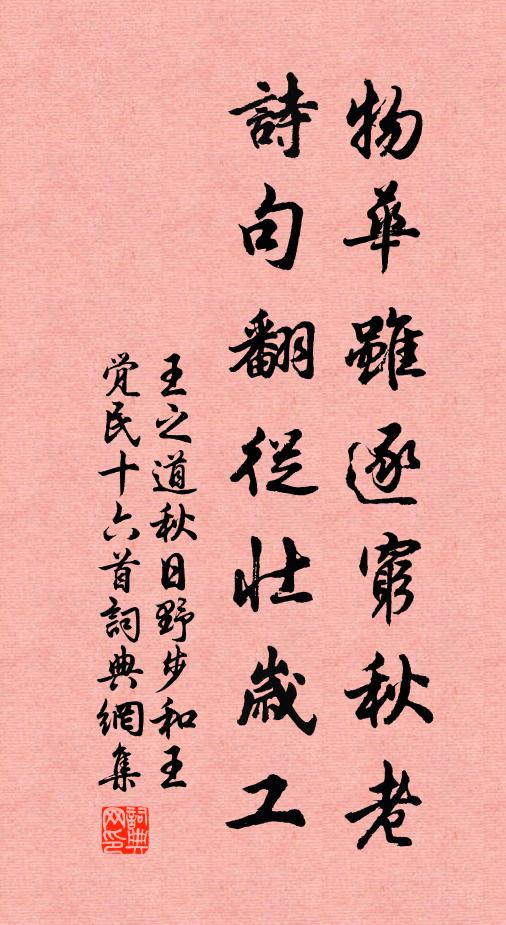 物華雖逐窮秋老
詩句翻從壯歲工
王之道秋日野步和王
覚民十六首詞典網集
詞典网印